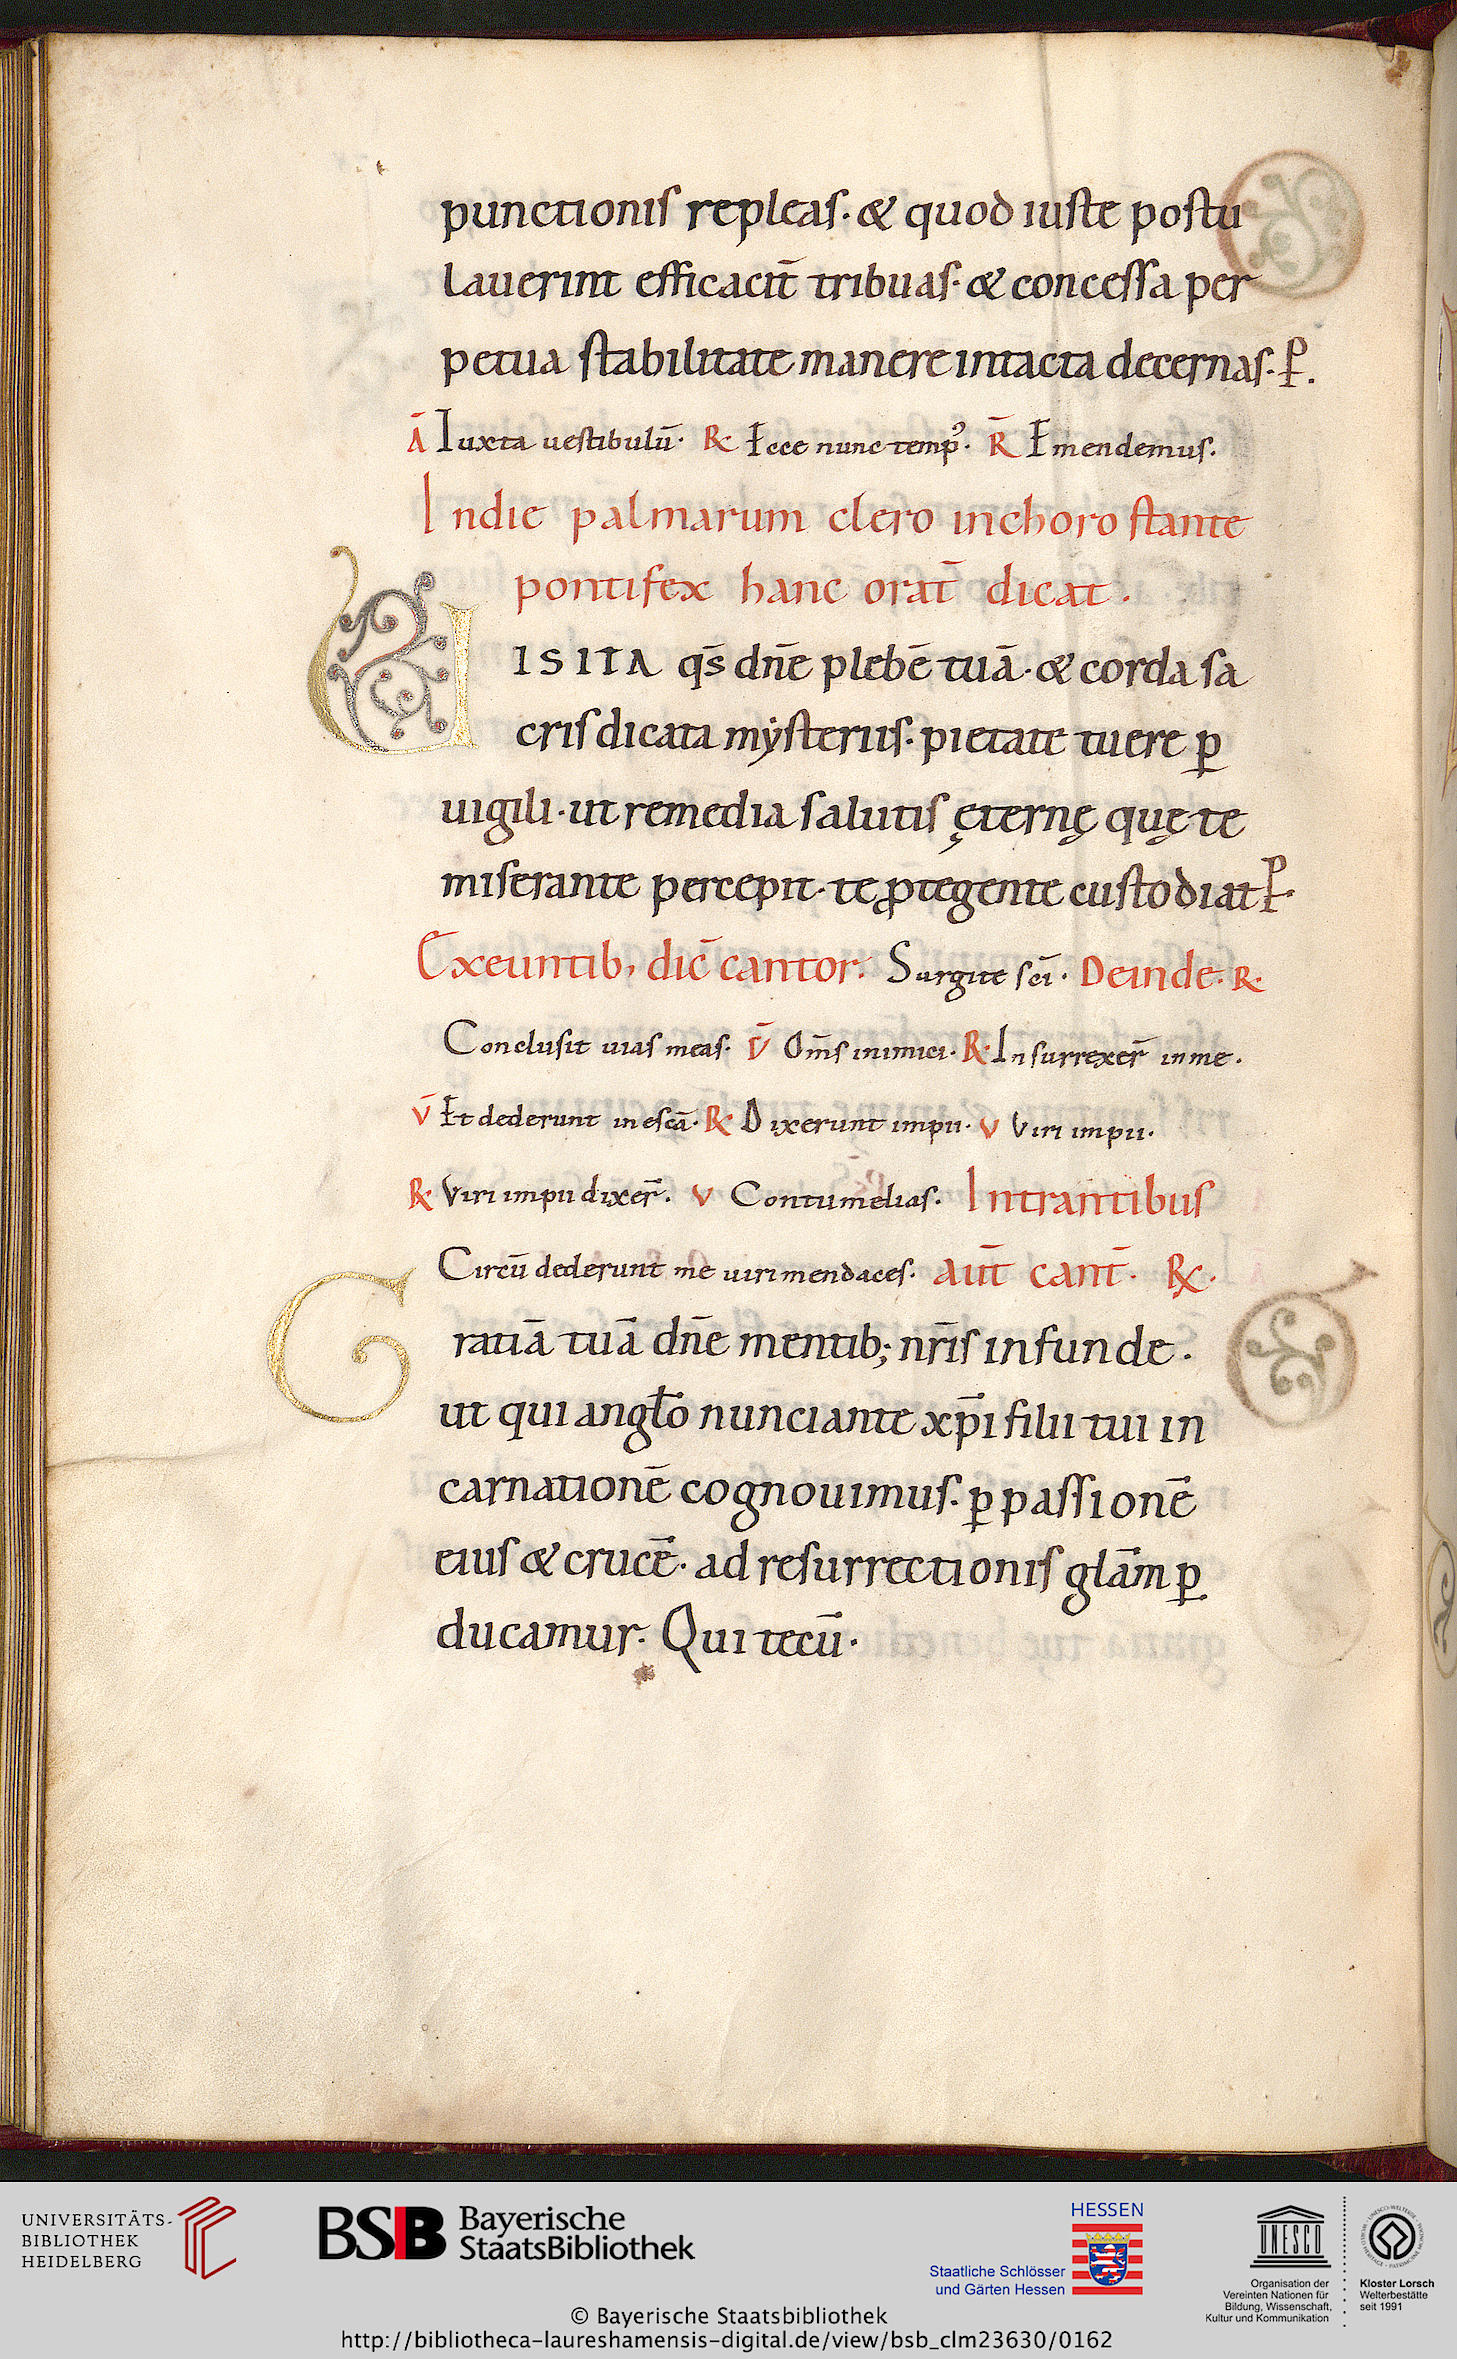 punctionis repleas· & quod iuste postu
lauerint efficacit̄ tribuas· & concessa per
petua stabilitate manere intacta decernas· P̄.
Ā Iuxta uestibulū· R̷ Ecce nunc temp᾿· R̄ Emendemus.
In die palmarum clero inchoro stante
pontifex hanc orat̄ dicat.
VISITA qs̄ dn̄e plebē tuā· & corda sa
cris dicata mẏsteriis· pietate tuere ꝑ
uigili· ut remedia salutis ęternę quę te
miserante percepit· te ꝓtegente custodiat P̄·
Exeuntib, dic̄ cantor. Surgite sc̄i· Deinde. R·
Conclusit uias meas· V̄ Om̄s inimici· R· Insurrexer̄ in me.
V̄ Et dederunt in escā· R̷ Dixerunt impii· V Viri impii·
R̷ Viri impii dixer̄. V Contumelias. Intrantibus
Circū dederunt me uiri mendaces. aut̄ cant̄. R̷.
Gratiā tuā dn̄e mentib; nr̄is infunde.
ut qui angl̄o nunciante xp̄i filii tui in
carnationē cognouimus· ꝑ passionē
eius & crucē· ad resurrectionis glām ꝑ
ducamur· Qui tecū·
UNIVERSITÄTS-
BIBLIOTHEK
HEIDELBERG
BSB Bayerische
StaatsBibliothek
HESSEN
Staatliche Schlösser
und Gärten Hessen
UNESCO
Organisation der
Vereinten Nationen für
Bildung, Wissenschaft,
Kultur und Kommunikation
Kloster Lorsch
Welterbestätte
seit 1991
© Bayerische Staatsbibliothek
http://bibliotheca-laureshamensis-digital.de/view/bsb_clm23630/0162